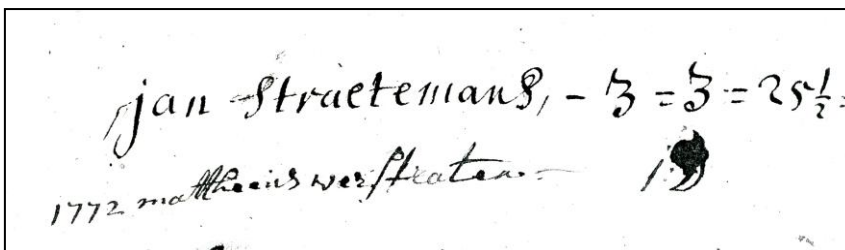 jan Straetemans, - 3 = 3 = 25 1/2 =
1772 mattheeus verstraten -